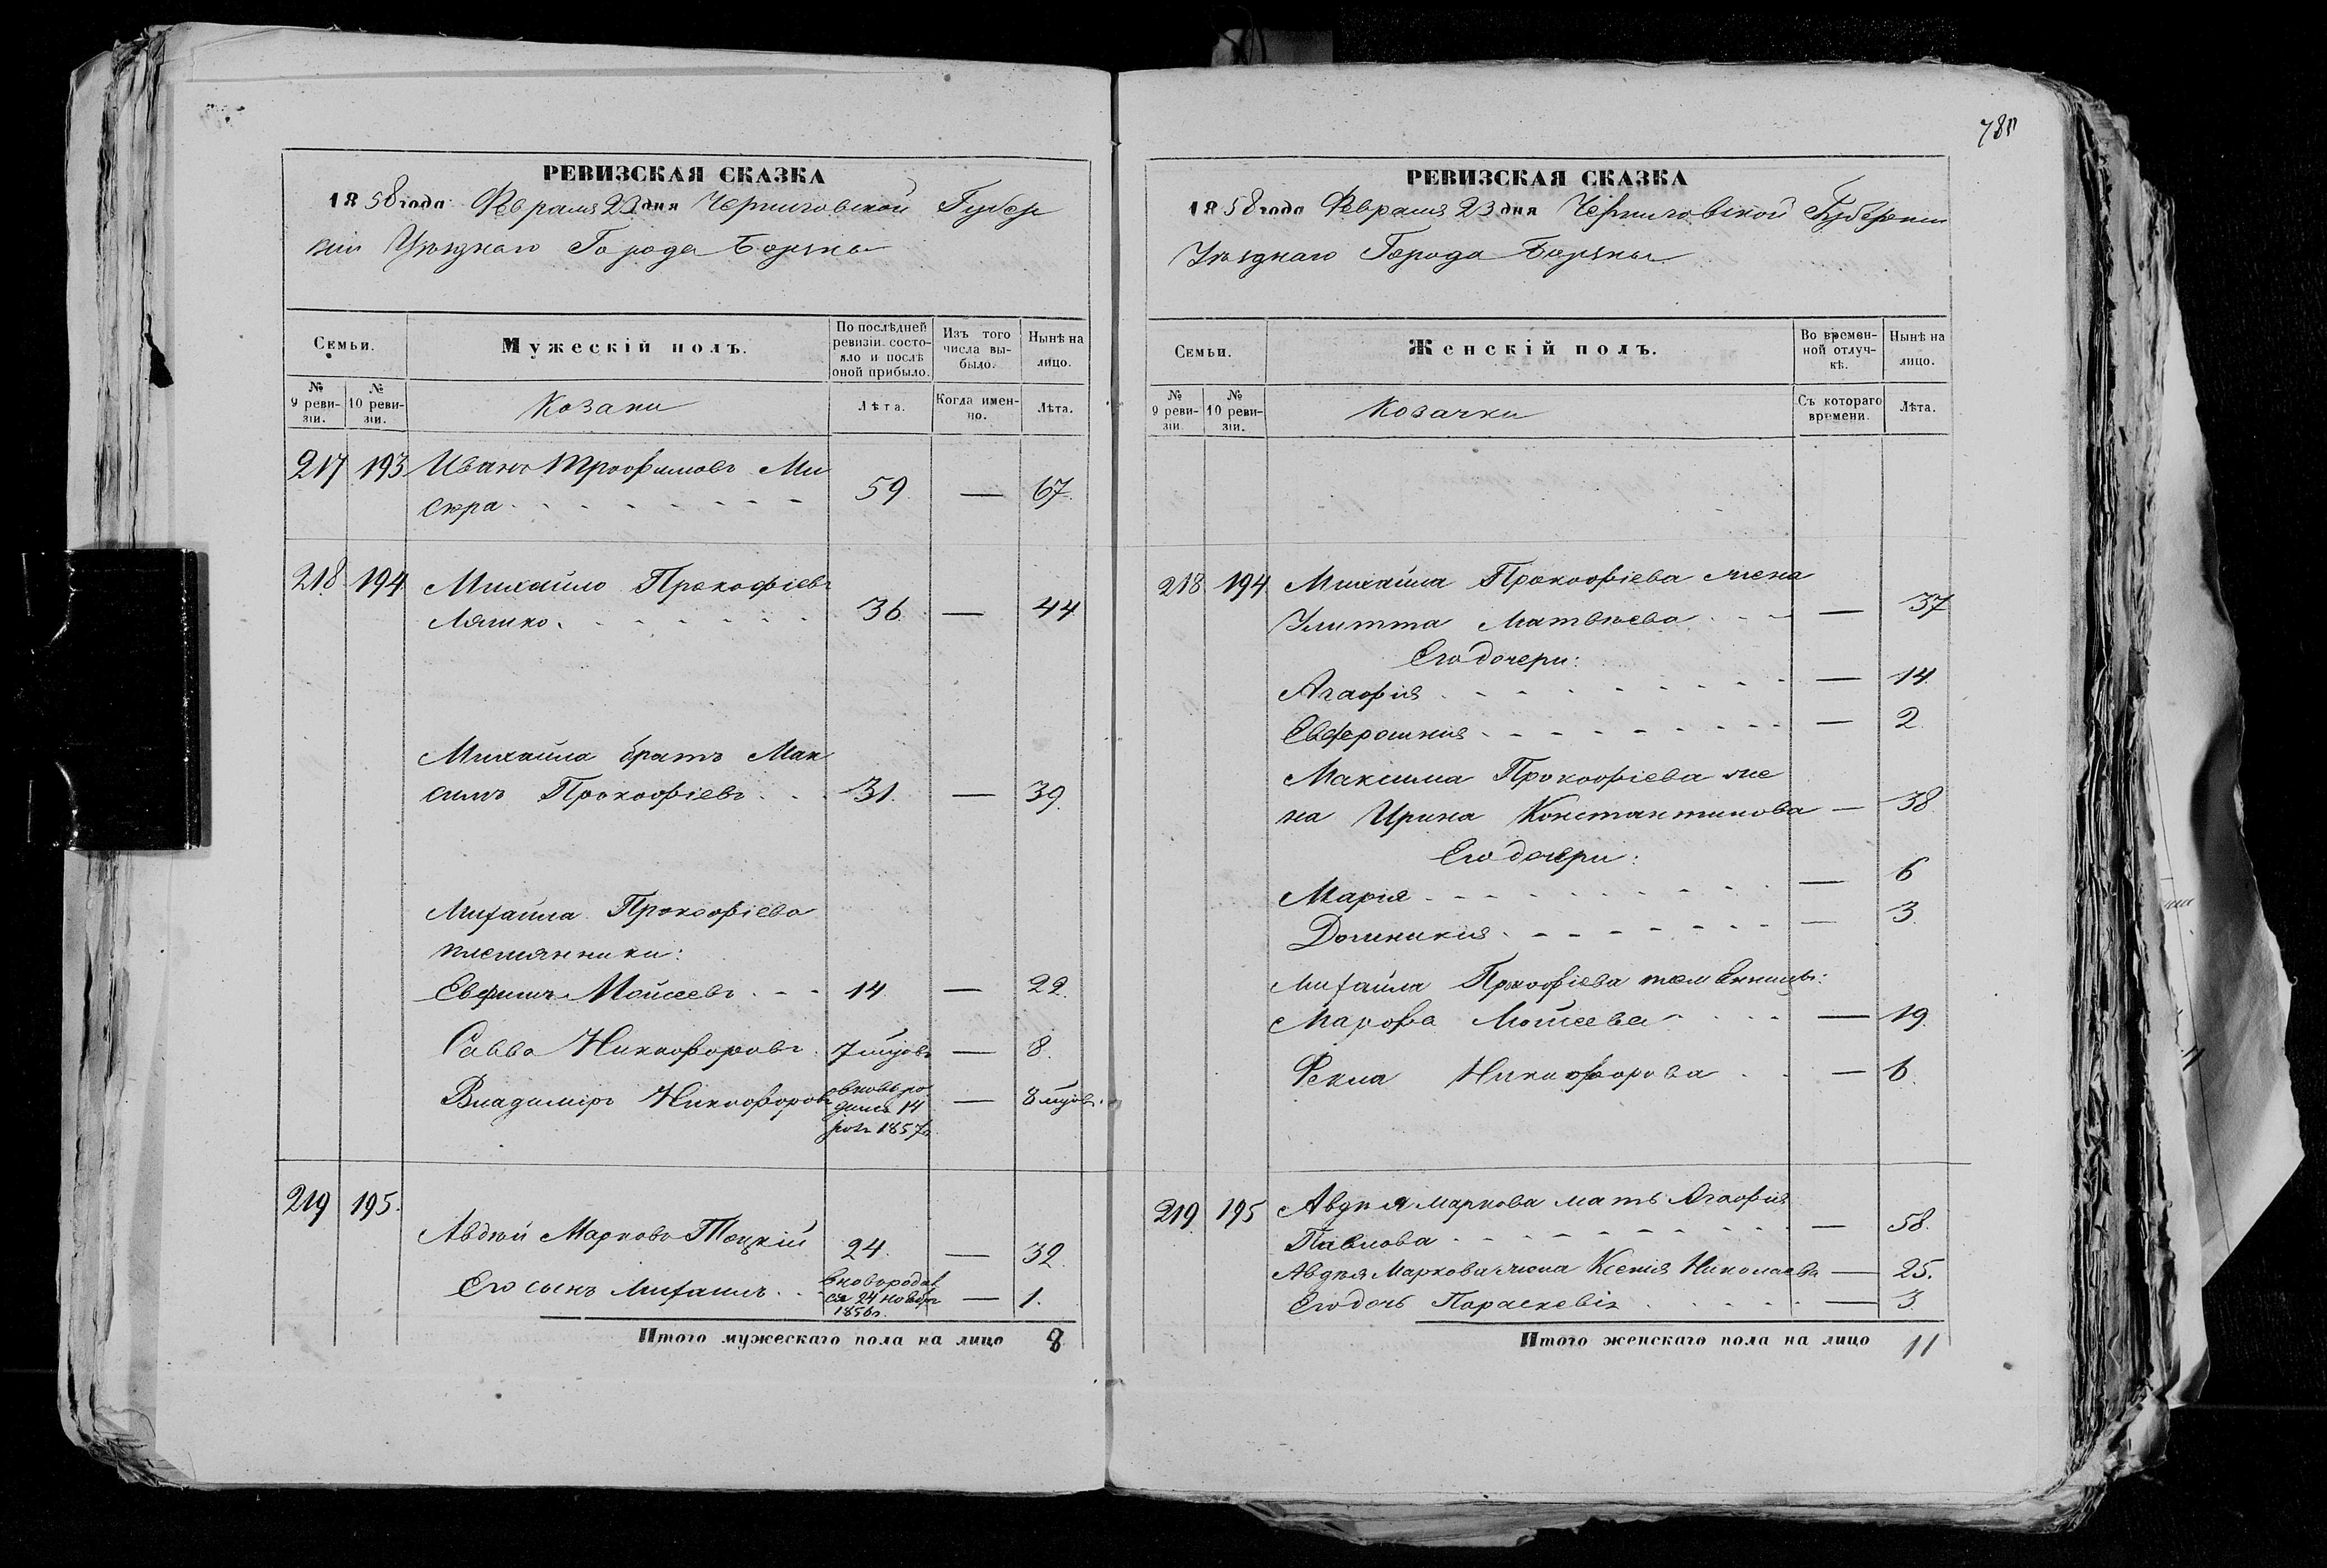 РЕВИЗСКАЯ СКАЗКА
1858 года Февраля 23 дня Черниговской Губер
нии Уѣзднаго Города Борзны
Семьи.
Мужескій полъ.
По послѣдней
ревизіи состо-
яло и послѣ
оной прибыло.
Изъ того
числа вы-
было.
Нынѣ на
лицо.
№
9 реви-
зіи.
№
10 реви-
зіи.
Козаки
Лѣта.
Когда имен-
но.
Лѣта.
217 193 Иванъ Трофимовъ Ми
скра 59 — 67.
218 194 Михайло Прокофіевъ
Ляшко 36 — 44
Михайла братъ Мак
симъ Прокофіевъ 31. — 39.
Михайла Прокофіева
племянники:
Евфимъ Мойсеевъ 14. — 22.
Савва Никифоровъ 7 — 8.
Владиміръ Никифоровъ вновь ро
дился 14 — 8
1857г.
219 195. Авдѣй Марковъ Тоцкій 24. — 32
Его сынъ Михаилъ вновородив
ся 24 ноября — 1.
1856г.
Итого мужескаго пола на лицо 8
78
РЕВИЗСКАЯ СКАЗКА
1858 года Февраля 23 дня Черниговской Губерніи
Уѣзднаго Города Борзны
Семьи.
Женскій полъ.
Во времен-
ной отлуч-
кѣ.
Нынѣ на
лицо.
№
9 реви-
зіи.
№
10 реви-
зіи.
Козачки
Съ котораго
времени.
Лѣта.
218 194 Михайла Прокофіева жена
Улитта Матвѣева — 37
Его дочери:
Агафія — 14.
Евфросинія — 2.
Максима Прокофіева же
на Ирина Константинова — 38.
Его дочери:
Марія — 6
Домникія — 3
Михайла Прокофіева племенницы:
Марфа Мойсеева — 19.
Фекла Никифорова — 6.
219. 195 Авдѣя Маркова мать Агафія
Павлова — 58.
Авдѣя Маркова жена Ксенія Николаева — 25.
Его дочь Параскевія — 3.
Итого женскаго пола на лицо 11